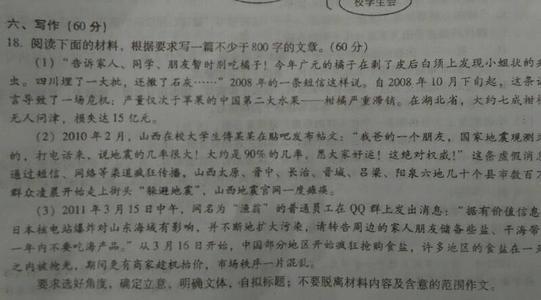 校学生会
六、写作(60分)
18. 阅读下面的材料,根据要求写一篇不少于800字的文章。(60分)
(1)“告诉家人、同学、朋友暂时别吃橘子!今年广元的橘子在剥了皮后白须上发现小蛆状的
虫。四川埋了一大批,还撒了石灰……”2008年的一条短信这样说。自2008年10月下旬起,这条
言导致了一场危机:产量仅次于苹果的中国第二大水果——柑橘严重滞销。在湖北省,大约七成柑
无人问津,损失达15亿元。
(2)2010年2月,山西在校大学生傅某某在贴吧发布帖文:“我爸的一个朋友,国家地震观测
的,打电话来,说地震的几率很大!大约是90%的几率,愿大家好运!这绝对权威!”这条虚假消
通过短信、网络等渠道疯狂传播,山西太原、晋中、长治、晋城、吕梁、阳泉六地几十个县市数百
群众凌晨开始走上街头“躲避地震”,山西地震官网一度瘫痪。
(3)2011年3月15日中午,网名为“渔翁”的普通员工在QQ群上发出消息:“据有价值信息
日本核电站爆炸对山东海域有影响,并不断地扩大污染,请转告周边的家人朋友储备些盐、干海带
一年内不要吃海产品。”从3月16日开始,中国部分地区开始疯狂抢购食盐,许多地区的食盐在一
之内被抢光,期间更有商家趁机抬价,市场秩序一片混乱。
要求选好角度,确定立意,明确文体,自拟标题;不要脱离材料内容及含意的范围作文。